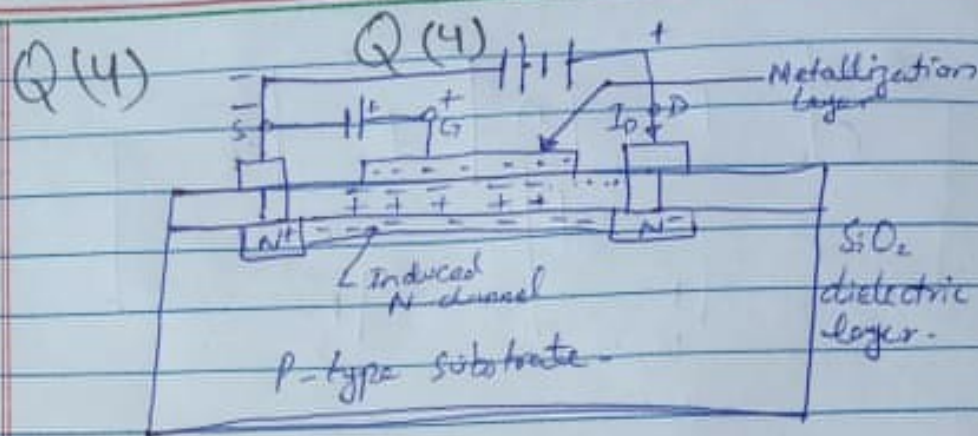 Q(4) Q(4)
- +
Metallization
layer
- + +
S G I_D D
- - - - -
- - - - - ...
+ + + + +
- - - - - - -
N+ N-
SiO2
Induced
N-channel
dielectric
layer.
P-type substrate -